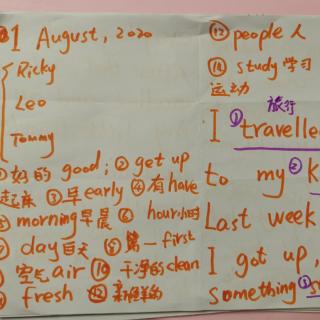 1 August, 2020
Ricky
Leo
Tommy
①好的 good; ② get up
起床 ③早 early ④有 have
morning 早晨 ⑥ hour小时
day 白天 第一 first
空气 air ⑩ 干净的 clean
fresh 新鲜的
people 人
study 学习
运动
旅行
I ① travelle
to my ② K
Last week
I got up,
something